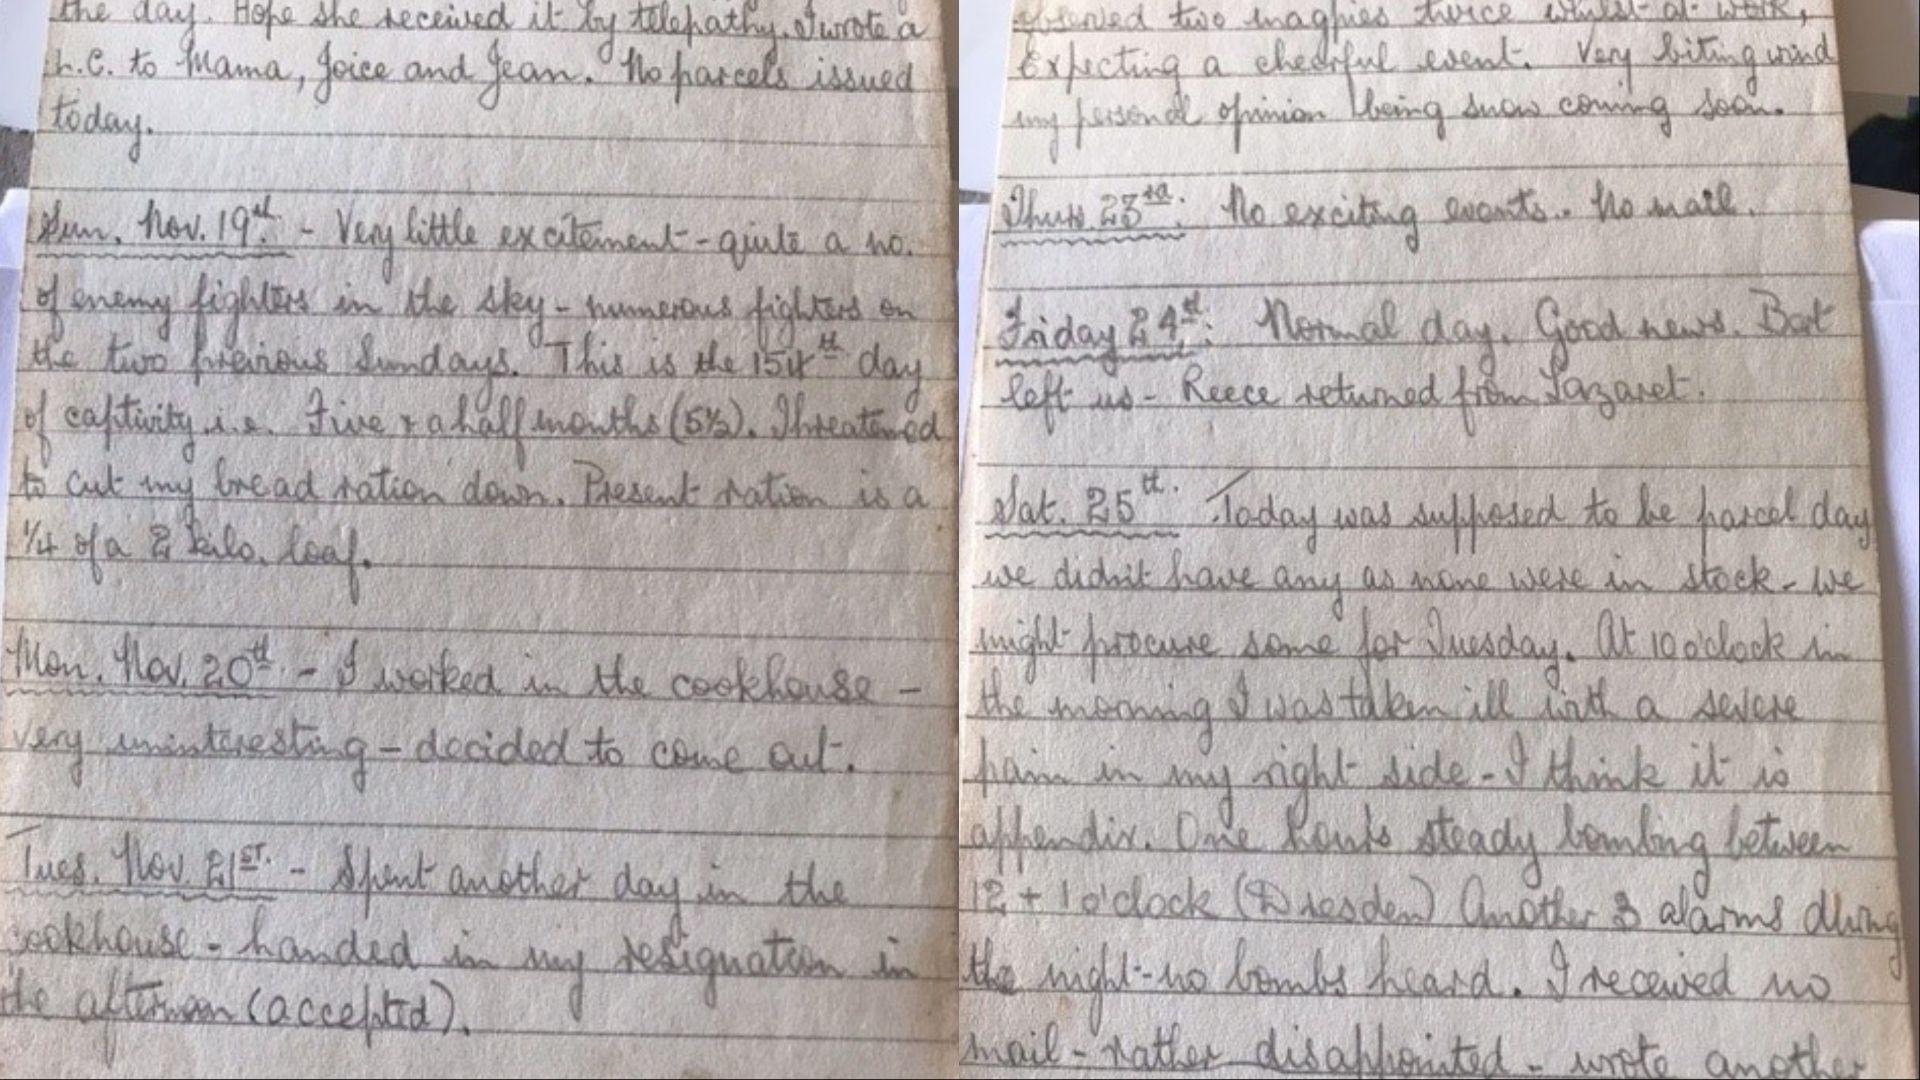 the day. Hope she received it by telepathy. I wrote a
L.C. to Mama, Joice and Jean. No parcels issued
today.
Sun. Nov. 19th. - Very little excitement - quite a no.
of enemy fighters in the sky - numerous fighters on
the two previous Sundays. This is the 154th day
of captivity i.e. Five & a half months (5½). Threatened
to cut my bread ration down. Present ration is a
1/4 of a 2 kilo. loaf.
Mon. Nov. 20th. - I worked in the cookhouse -
very uninteresting - decided to come out.
Tues. Nov. 21ST. - Spent another day in the
cookhouse - handed in my resignation in
the afternoon (accepted).
observed two magpies twice whilst at work,
Expecting a cheerful event. Very biting wind
my personal opinion being snow coming soon.
Thurs. 23rd. No exciting events. No mail.
Friday 24th: Normal day. Good news. Bart
left us - Reece returned from Lazaret.
Sat. 25th. Today was supposed to be parcel day
we didn't have any as none were in stock - we
might procure some for Tuesday. At 10 o'clock in
the morning I was taken ill with a severe
pain in my right side - I think it is
appendix. One hours steady bombing between
12 + 1 o'clock (Dresden) Another 3 alarms during
the night - no bombs heard. I received no
mail - rather disappointed - wrote another